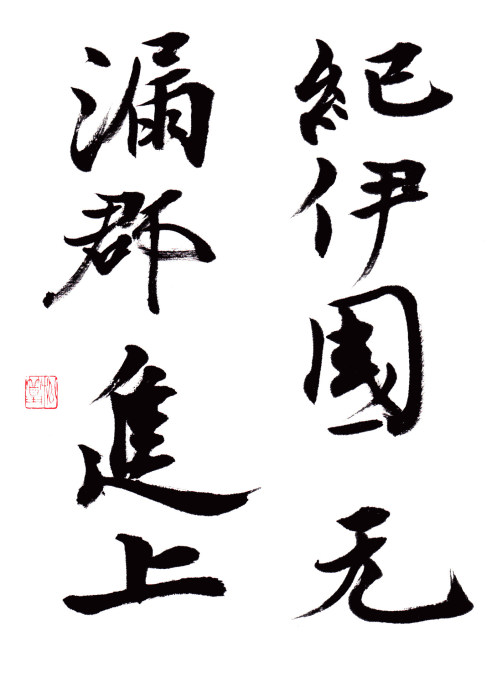 紀伊國无
漏郡進上